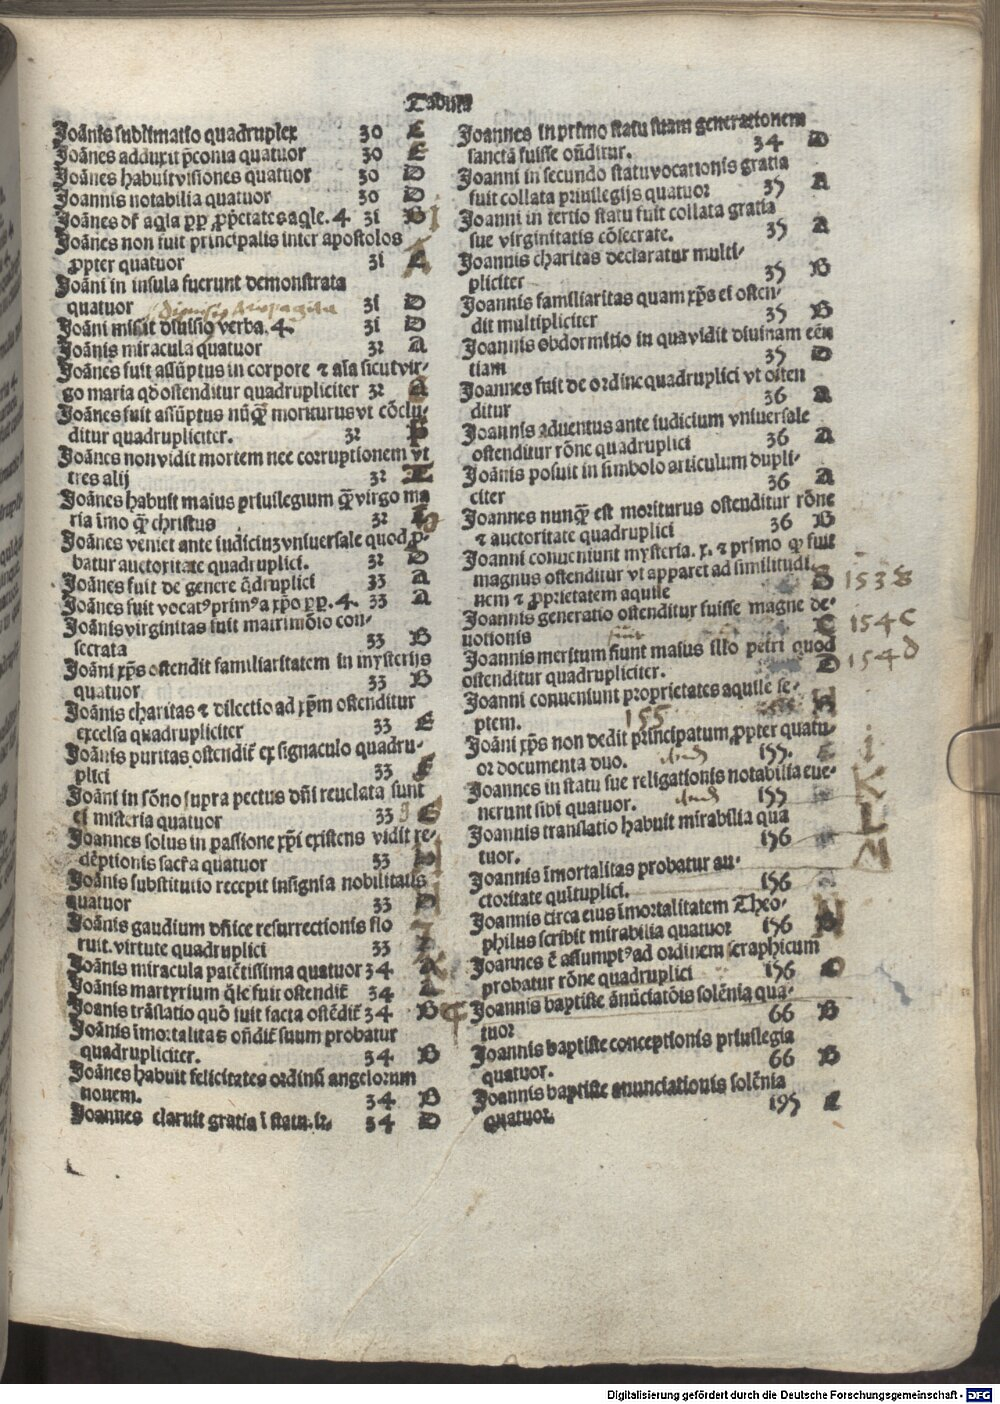 Tabula
Joānis sublimatio quadruplex 30 E
Joānes adduxit p̄conia quatuor 30 E
Joānes habuit visiones quatuor 30 D
Joannis notabilia quatuor 30 D
Joānes dr̄ aq̄la ꝓp̄ ꝓp̄etates aq̄le. 4 31 B
Joānes non fuit principalis inter apostolos
ꝓpter quatuor 31
Joāni in insula fuerunt demonstrata
quatuor 31 D
Joāni misit diuisio verba. 4. 31 D
Joānis miracula quatuor 32 A
Joānes fuit assūptus in corpore ⁊ aīa sicut vir-
go maria qd̄ ostenditur quadrupliciter 32
Joānes fuit assūptus nūq̄ȝ moriturus vt cōclu-
ditur quadrupliciter. 32
Joānes non vidit mortem nec corruptionem vt
tres alij 32
Joānes habuit maius priuilegium q̄ȝ virgo ma
ria īmo q̄ȝ christus 32
Joānes veniet ante iudiciuȝ vniuersale quod ꝓ-
batur auctoritate quadruplici. 32 D
Joānes fuit de genere q̄druplici 33 A
Joānes fuit vocatꝰ primꝰ a xp̄o ꝓp̄. 4. 33 A
Joānis virginitas fuit matrimōio con-
secrata 33 B
Joāni xp̄s ostendit familiaritatem in mysterijs
quatuor 33 B
Joānis charitas ⁊ dilectio ad xp̄m ostenditur
excelsa quadrupliciter 33 E
Joānis puritas ostendit̄ ex signaculo quadru-
plici 33
Joāni in sōno supra pectus dn̄i reuelata sunt
ei misteria quatuor 33
Joannes solus in passione xp̄i existens vidit re-
dēptionis sacr̄a quatuor 33
Joānis substitutio recepit insignia nobilitatis
quatuor 33
Joānis gaudium dn̄ice resurrectionis flo
ruit. virtute quadruplici 33
Joānis miracula patētissima quatuor 34 A
Joānis martyrium q̄le fuit ostendit̄ 34 A
Joanis trāslatio quō fuit facta ostēdit̄ 34 B
Joānis īmortalitas on̄dit̄ suum probatur
quadrupliciter. 34 B
Joānes habuit felicitates ordinū angelorum
nouem. 34 B
Joannes claruit gratia ī statu. 34 D
Joannes in primo statu suam generationem
sanctā fuisse on̄ditur. 34 D
Joanni in secundo statu vocationis gratia
fuit collata priuilegijs quatuor 35 A
Joanni in tertio statu fuit collata gratia
sue virginitatis cōsecrate. 35 A
Joannis charitas declaratur multi-
pliciter 35 B
Joannis familiaritas quam xp̄s ei osten-
dit multipliciter 35 B
Joannis obdormitio in qua vidit diuinam eēn
tiam 35 D
Joannes fuit de ordine quadruplici vt osten
ditur 36 A
Joannis aduentus ante iudicium vniuersale
ostenditur rōne quadruplici 36 A
Joānis posuit in simbolo articulum dupli-
citer 36 A
Joannes nunq̄ȝ est moriturus ostenditur rōne
⁊ auctoritate quadruplici 36 B
Joanni conueniunt mysteria. x. ⁊ primo qꝫ fuit
magnus ostenditur vt apparet ad similitudi
nem ⁊ ꝓprietatem aquile 153
Joannis generatio ostenditur fuisse magne de-
uotionis 154 C
Joannis meritum fiunt maius illo petri quod
ostenditur quadrupliciter. D 154 D
Joanni conueniunt proprietates aquile se-
ptem. 155
Joāni xp̄s non dedit principatum ꝓpter quatu-
or documenta duo. 155. i
Joannes in statu sue religationis notabilia eue-
nerunt sibi quatuor. 155 K
Joannis translatio habuit mirabilia qua
tuor. 156 L
Joannis īmortalitas probatur au-
ctoritate quītuplici. 156 M
Joannis circa eius īmortalitatem Theo-
philus scribit mirabilia quatuor 156 N
Joannes ē assumptꝰ ad ordinem seraphicum
probatur rōne quadruplici 156
Joannis baptiste ānūciatōis solēnia qua-
tuor 66 B
Joannis baptiste conceptionis priuilegia
quatuor. 66 B
Joannis baptiste anunciationis solēnia
quatuor 195
Digitalisierung gefördert durch die Deutsche Forschungsgemeinschaft - DFG